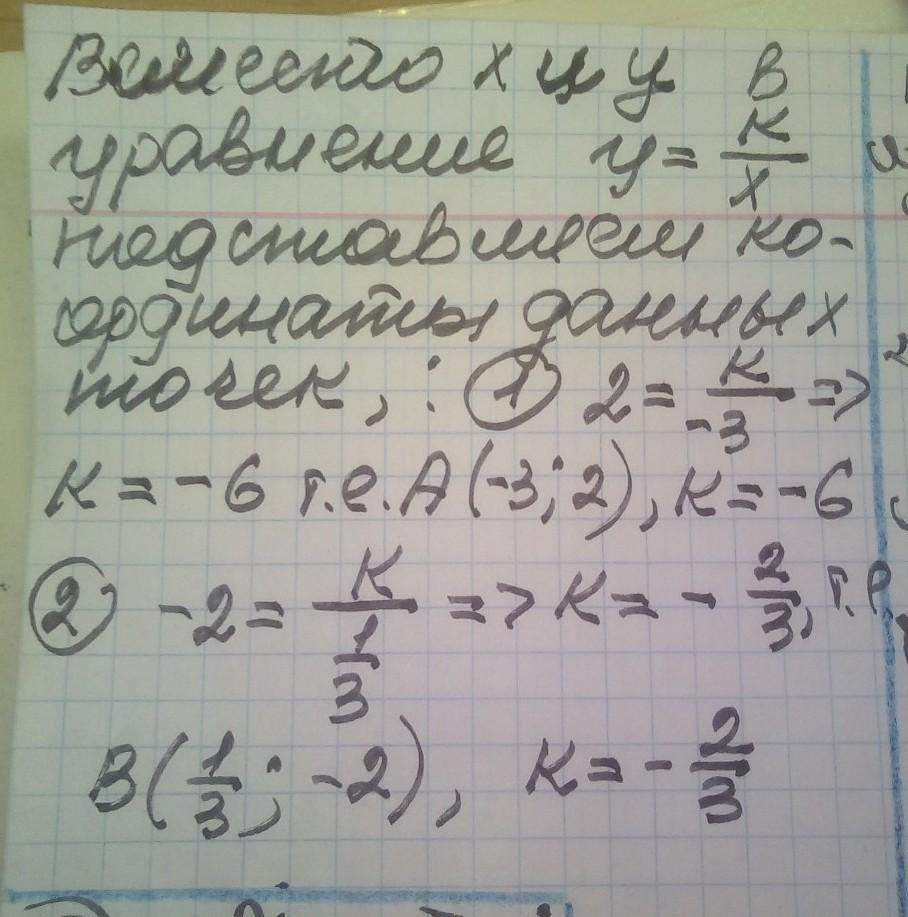 Вместо х и у в
уравнение у = К/Х
подставляем ко-
ординаты данных
точек, : ① 2 = К/-3 =>
К = -6 т.е. А (-3; 2), К = -6
② -2 = К/(1/3) => К = - 2/3, т.е.
В (1/3; -2), К = - 2/3